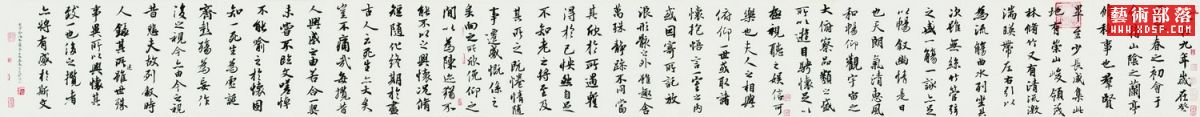 艺术部落
九年歲在癸
暮春之初會于
山陰之蘭亭
修禊事也羣賢
畢至少長咸集此
地有崇山峻領茂
林脩竹又有清流激
湍暎帶左右引以
為流觴曲水列坐其
次雖無絲竹管弦
之盛一觴一詠亦足
以暢叙幽情是日
也天朗氣清惠風
和暢仰觀宇宙之
大俯察品類之盛
所以遊目騁懷足以
極視聽之娛信可
樂也夫人之相與
俯仰一世或取諸
懷抱悟言一室之內
或因寄所託放
浪形骸之外雖趣舍
萬殊靜躁不同當
其欣於所遇暫
得於己快然自足
不知老之將至及
其所之既惓情隨
事遷感慨係之
矣向之所欣俛仰之
間以為陳迹猶不
能不以之興懷況脩
短隨化終期於盡
古人云死生亦大矣
豈不痛哉每攬昔
人興感之由若合一契
未嘗不臨文嗟悼
不能喻之於懷固
知一死生為虛誕
齊彭殤為妄作
後之視今亦由今之視
昔悲夫故列叙時
人錄其所述雖世殊
事異所以興懷其
致一也後之攬者
亦將有感於斯文